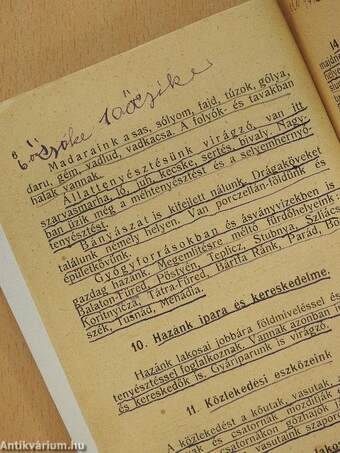 6
Madaraink a sas, sólyom, fajd, túzok, gólya,
daru, gém, vadlud, vadkacsa. A folyók- és tavakban
halak vannak.
Állattenyésztésünk virágzó, van itt
szarvasmarha, ló, juh, kecske, sertés, bivaly. Nagy-
ban űzik még a méhtenyésztést és a selyemhernyó-
tenyésztést.
Bányászat is kifejlett nálunk. Drágaköveket
találunk némely helyen. Van porczellán-földünk és
épületkövünk.
Gyógyforrásokban és ásványvizekben is
gazdag hazánk. Megemlítésre méltó fürdőhelyeink:
Balaton-Füred, Pöstyén, Teplicz, Stubnya, Szliács,
Koritnyicza, Tátra-Füred, Bártfa Ránk, Parád,
szék, Tusnád, Mehádia.
10. Hazánk ipara és kereskedelme.
Hazánk lakosai jobbára földmíveléssel és
tenyésztéssel foglalkoznak. Vannak azonban
és kereskedők is. Gyáriparunk is virágzó.
11. Közlekedési eszközeink
A közlekedést a kőutak, vasutak,
és csatornák mozdítják
és csatornákon gőzhajók
vasutaink
14
Antikvárium.hu